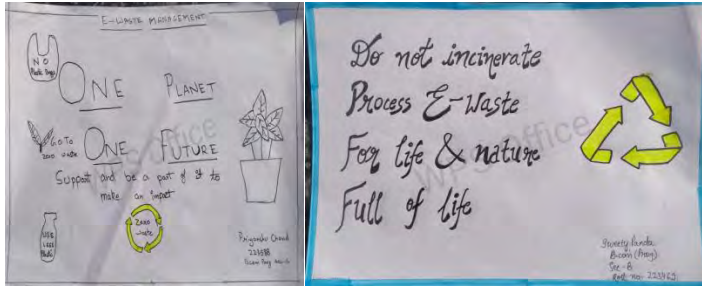 E-WASTE MANAGEMENT
NO
Plastic Bags
ONE PLANET
Go To
zero waste
ONE FUTURE
Support and be a part of it to
make an impact
USE
LESS
Plastic
Zero
waste
Priyanshu Chand
Do not incinerate
Process E-Waste
For life & nature
Full of life
WPS Office
Sweety Panda
Bcom (Prog)
Sec-B
Roll no: 223469